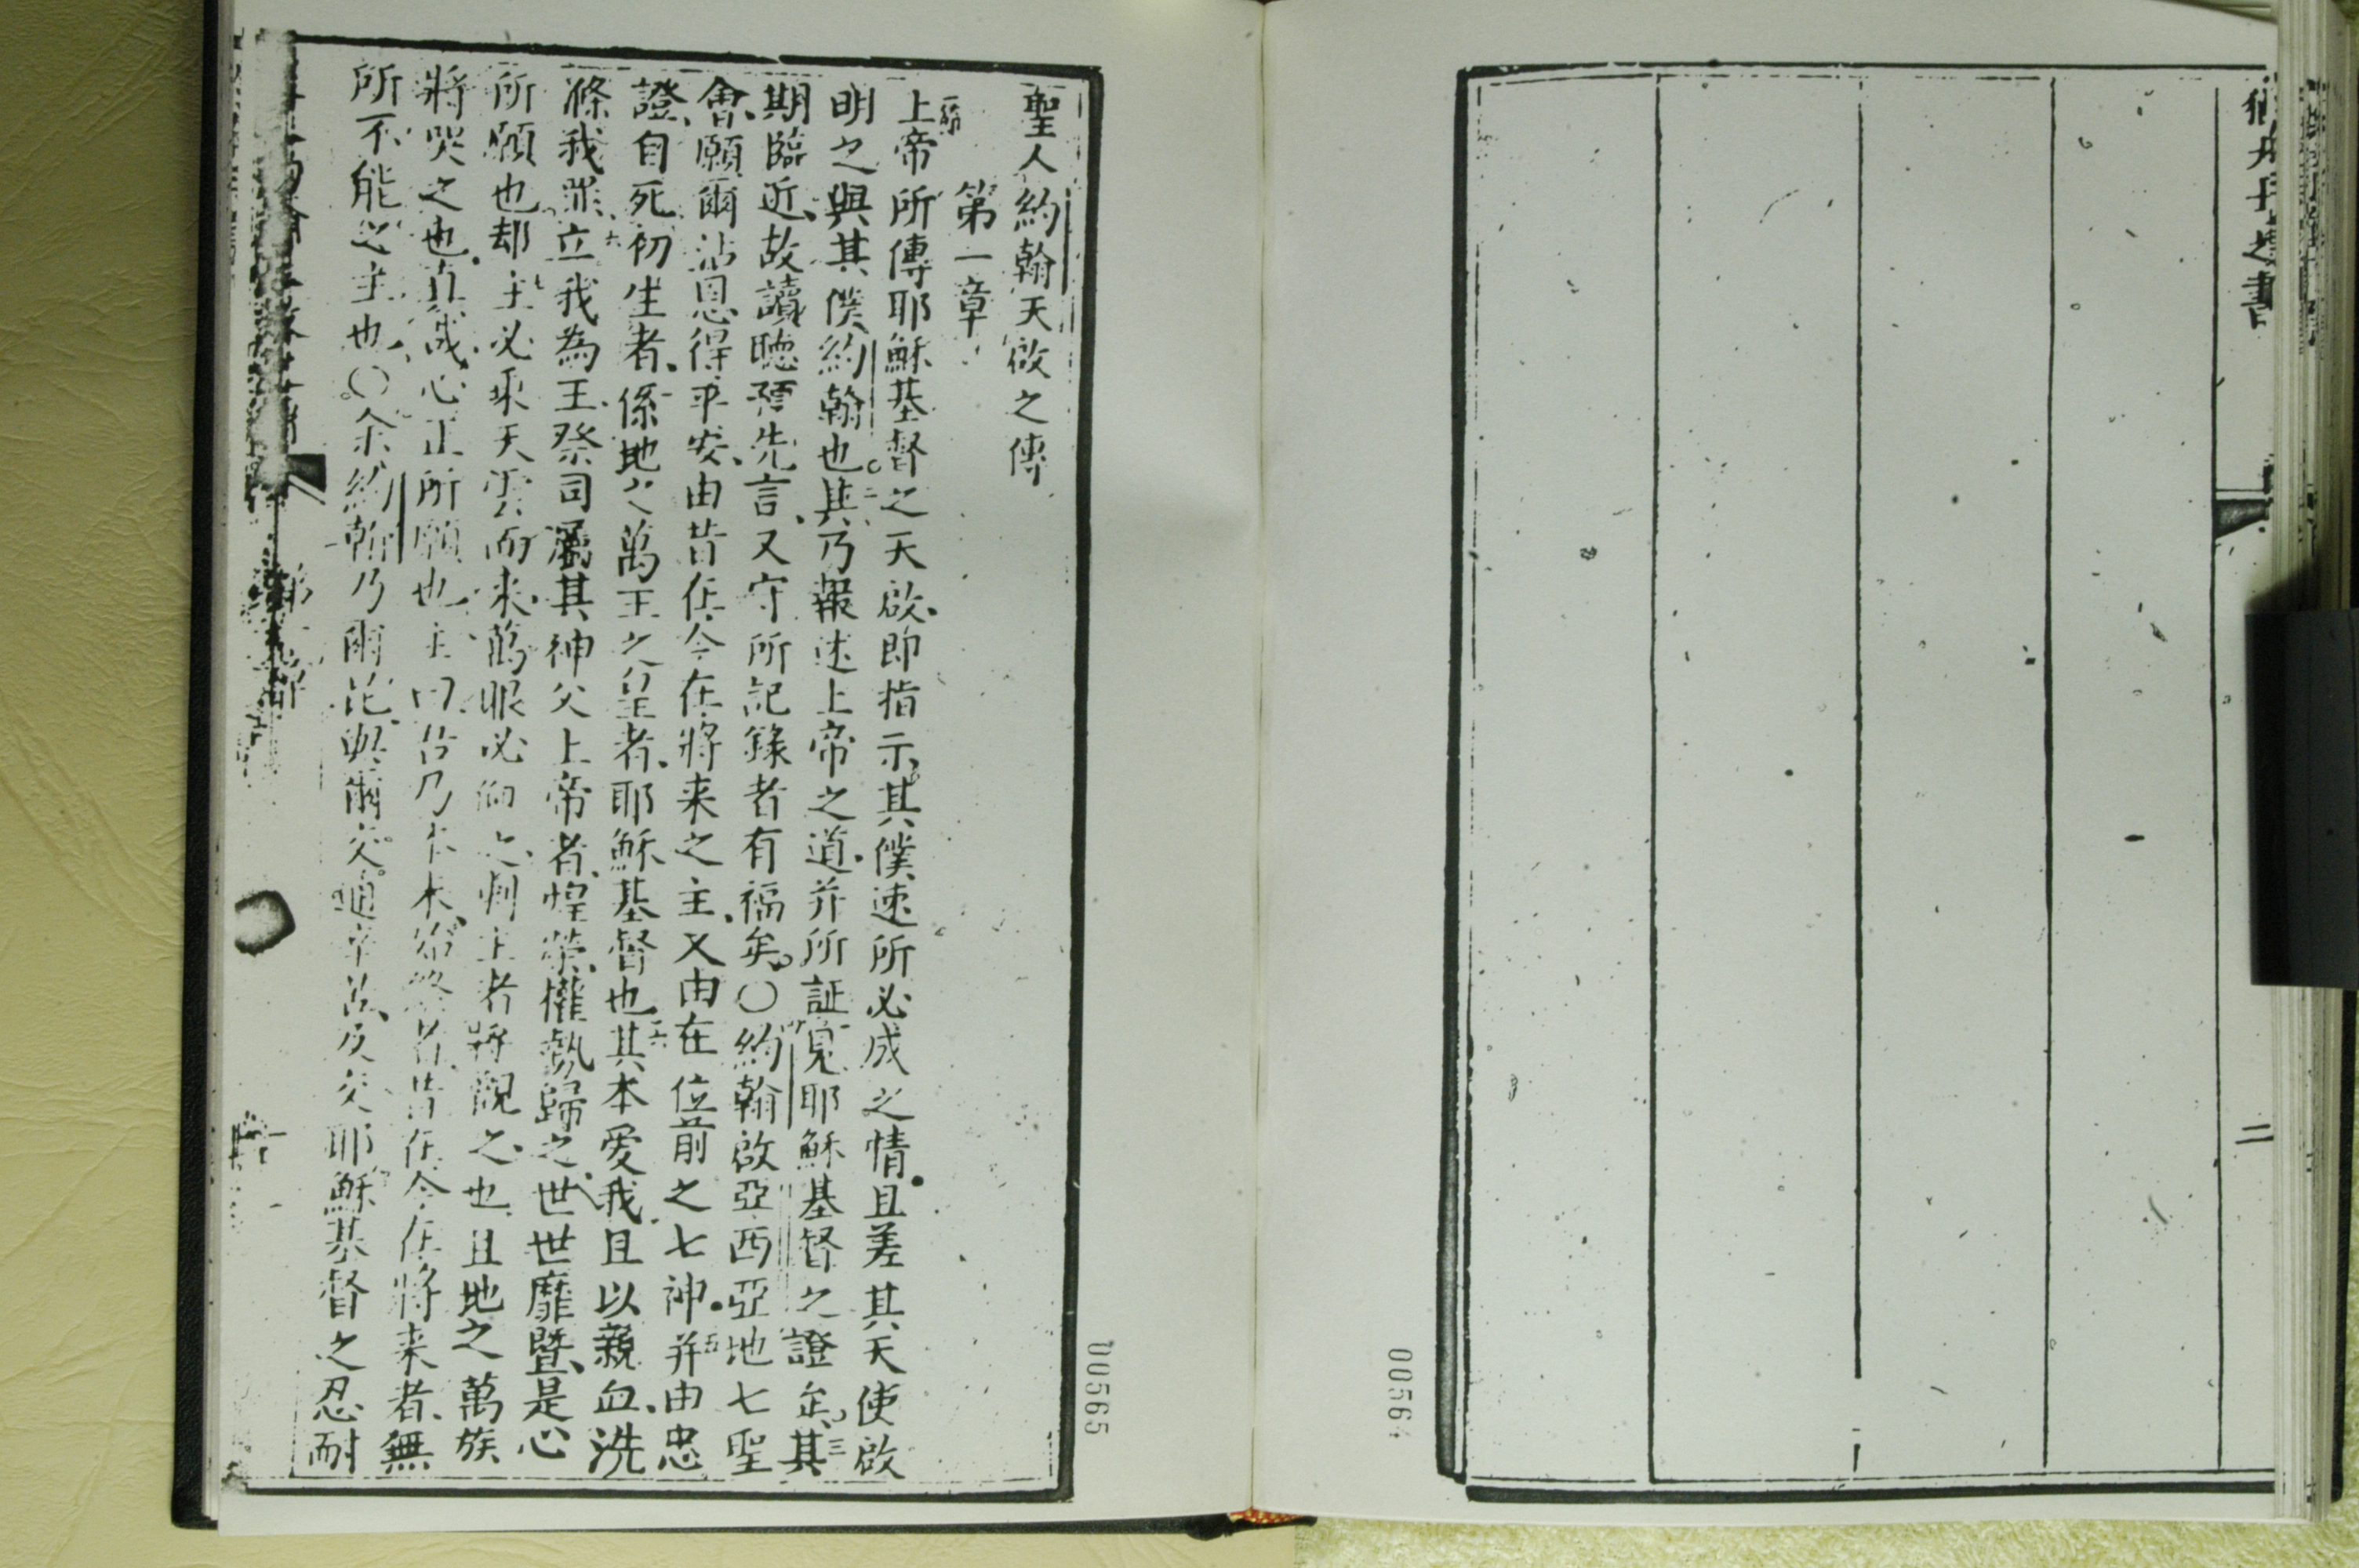 之書
二
00564
00565
聖人約翰天啟之傳
第一章
上帝所傳耶穌基督之天啟、即指示其僕速所必成之情、且差其天使啟
明之與其僕約翰也。二其乃報述上帝之道、并所証見耶穌基督之證矣。三其
期臨近、故讀聽預先言、又守所記錄者有福矣。〇約翰啟亞西亞地七聖
會、願爾沾恩得平安、由昔在今在將来之主、又由在位前之七神、五并由忠
證、自死初生者、係地之萬王之皇者、耶穌基督也、其本愛我、且以親血、洗
滌我罪、六立我為王祭司屬其神父上帝者、惶榮、權勢歸之、世世靡暨、是心
所願也、却主必乘天雲而来、萬眼必向之、刺主者將覩之也、且地之萬族
將哭之也、真誠心正所願也、主曰吾乃本末始終者、昔在今在將来者、無
所不能之主也、〇余約翰乃爾 與爾交 及交耶穌基督之忍耐